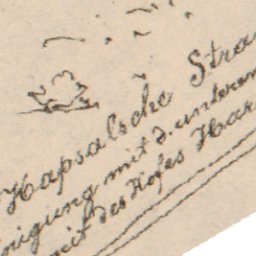 Hapsalsche Stra
nigung mit d. unteren
mit des Hofes Har